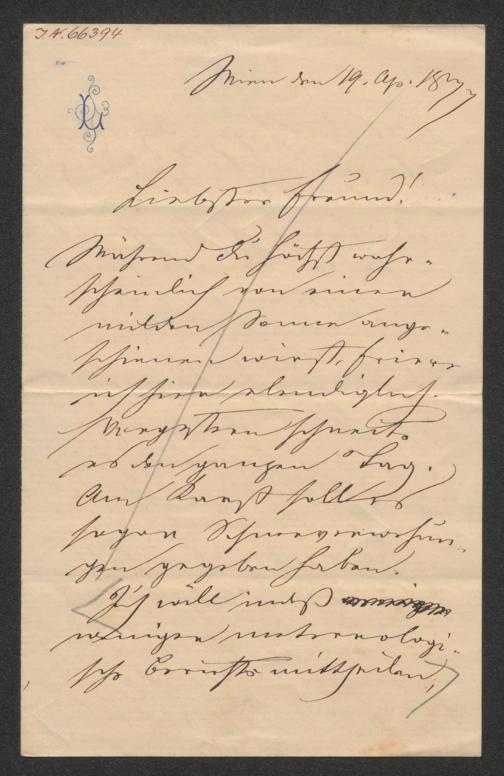 I.N. 66394
Wien den 19. Ap. 1877
Liebster Freund!
Während Du höchst wahr-
scheinlich von einer
milden Sonne ange-
schienen wirst, friere
ich hier elendiglich.
Vorgestern schneite
es den ganzen Tag.
Am Karst soll es
sogar Schneeverwehun-
gen gegeben haben.
Ich will indeß
weniger meteorologi-
sche Berichte mittheilen,